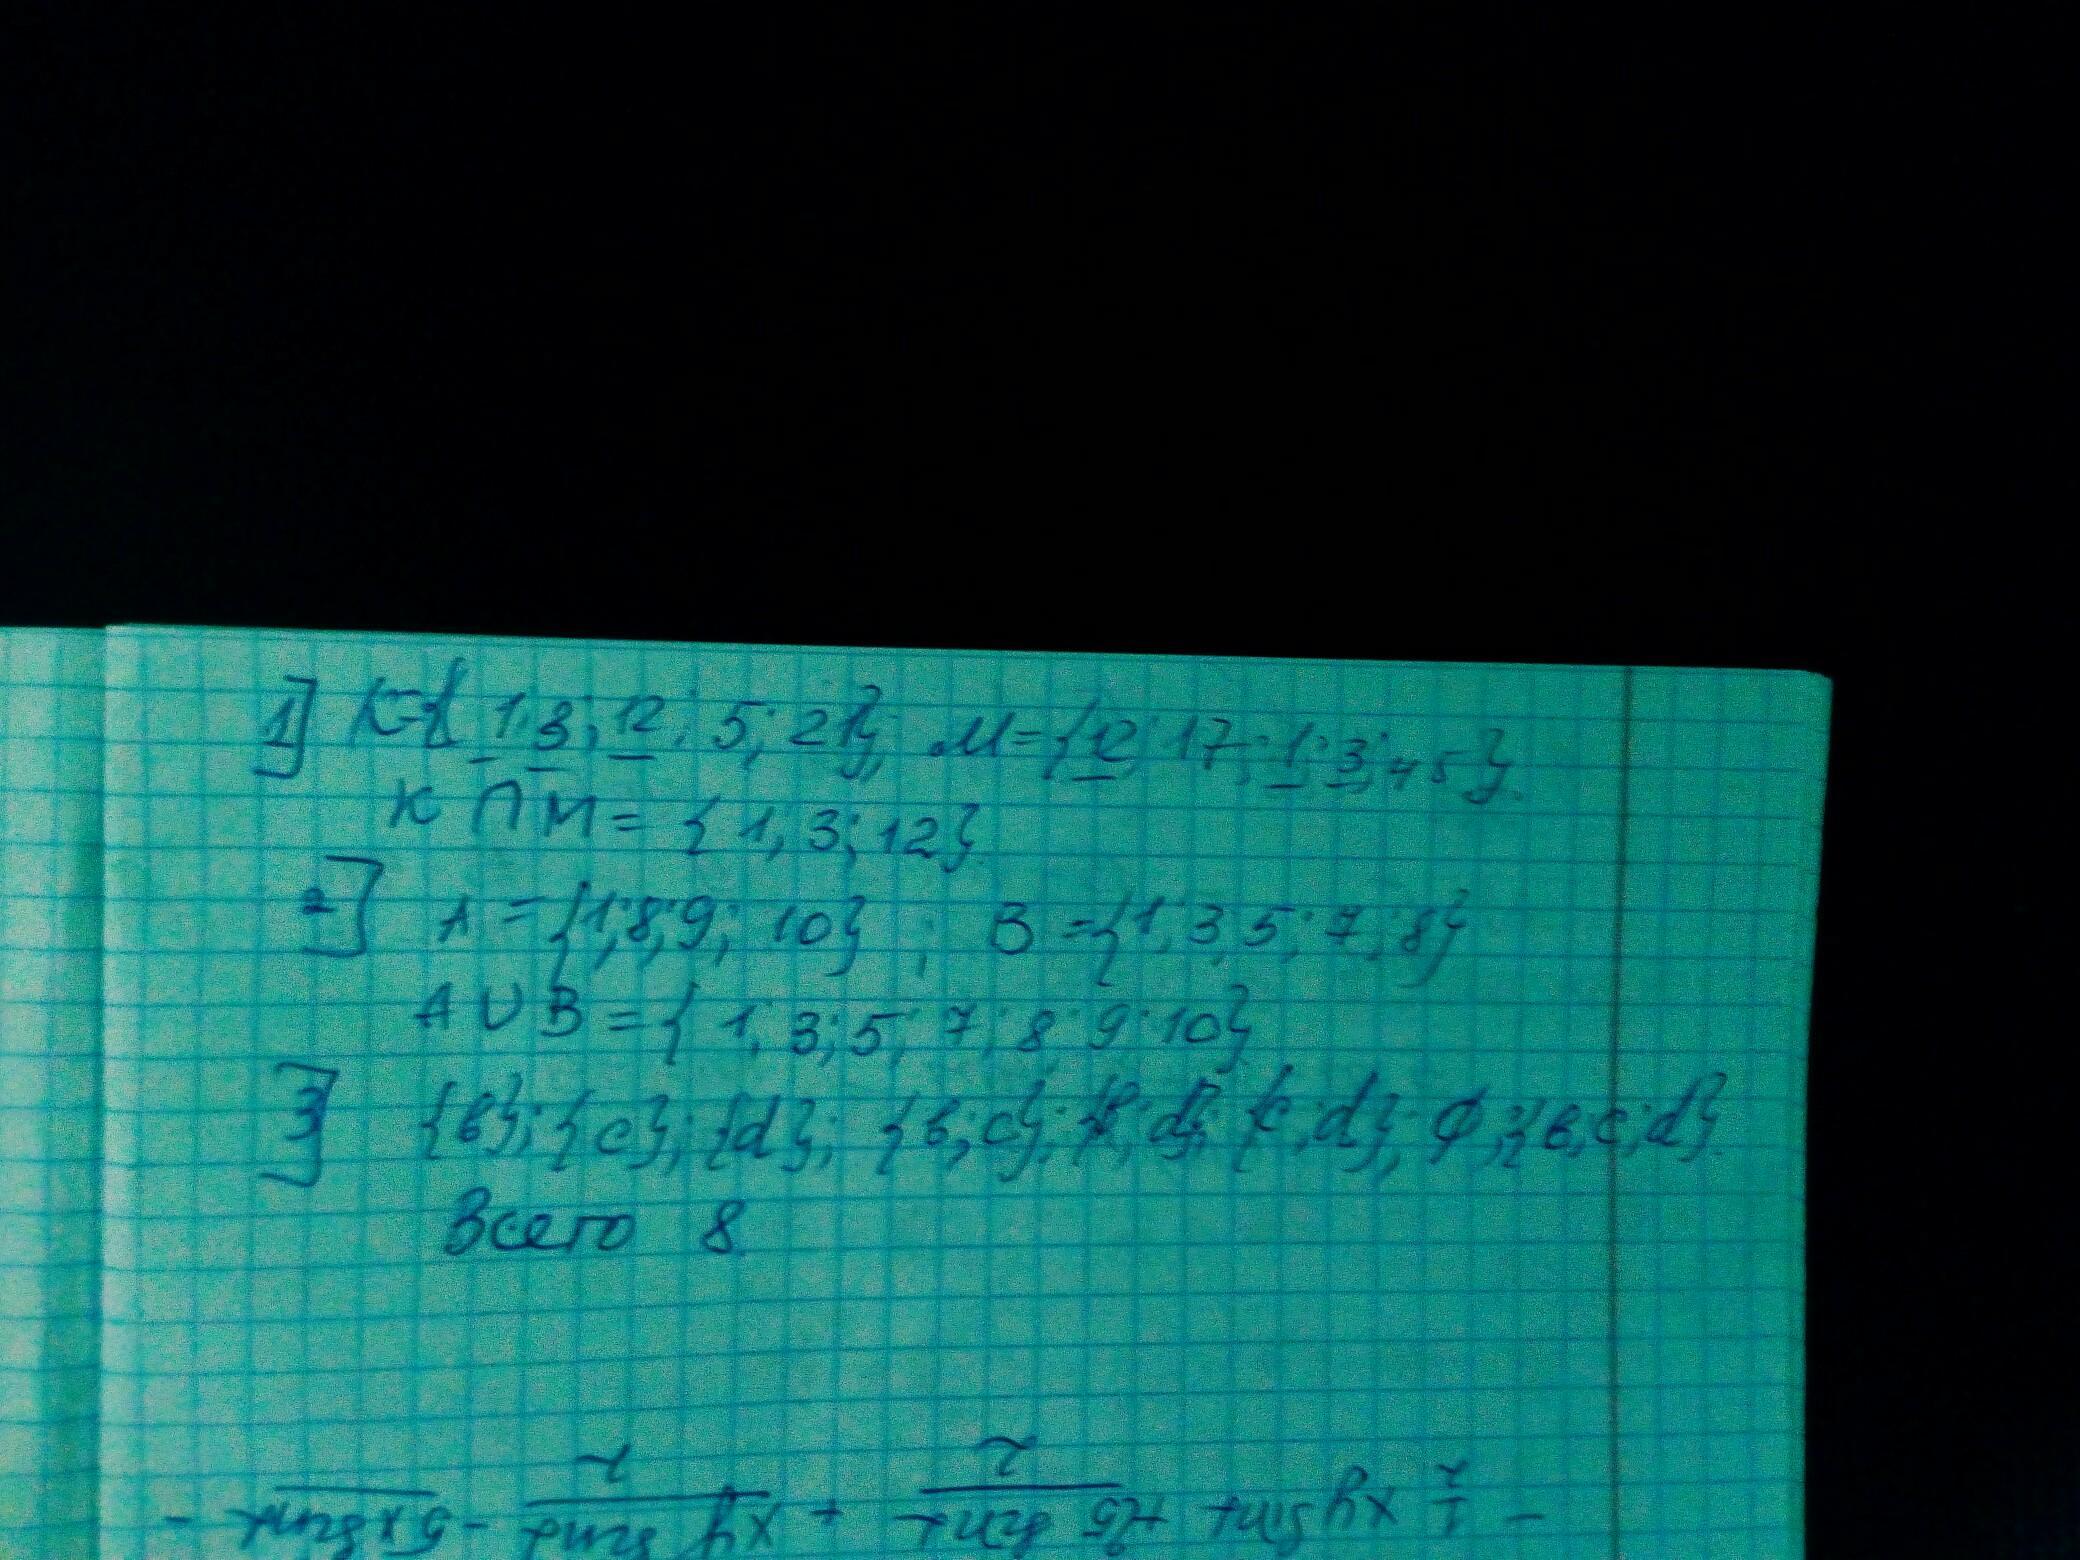 1] K={1;3;12;5;21}; M={12;17;1;3;45}.
K∩M={1;3;12}.
2] A={1;8;9;10}; B={1;3;5;7;8}
A∪B={1;3;5;7;8;9;10}
3] {в};{c};{d};{в;c};{в;d};{c;d};Ф;{в;c;d}.
Всего 8